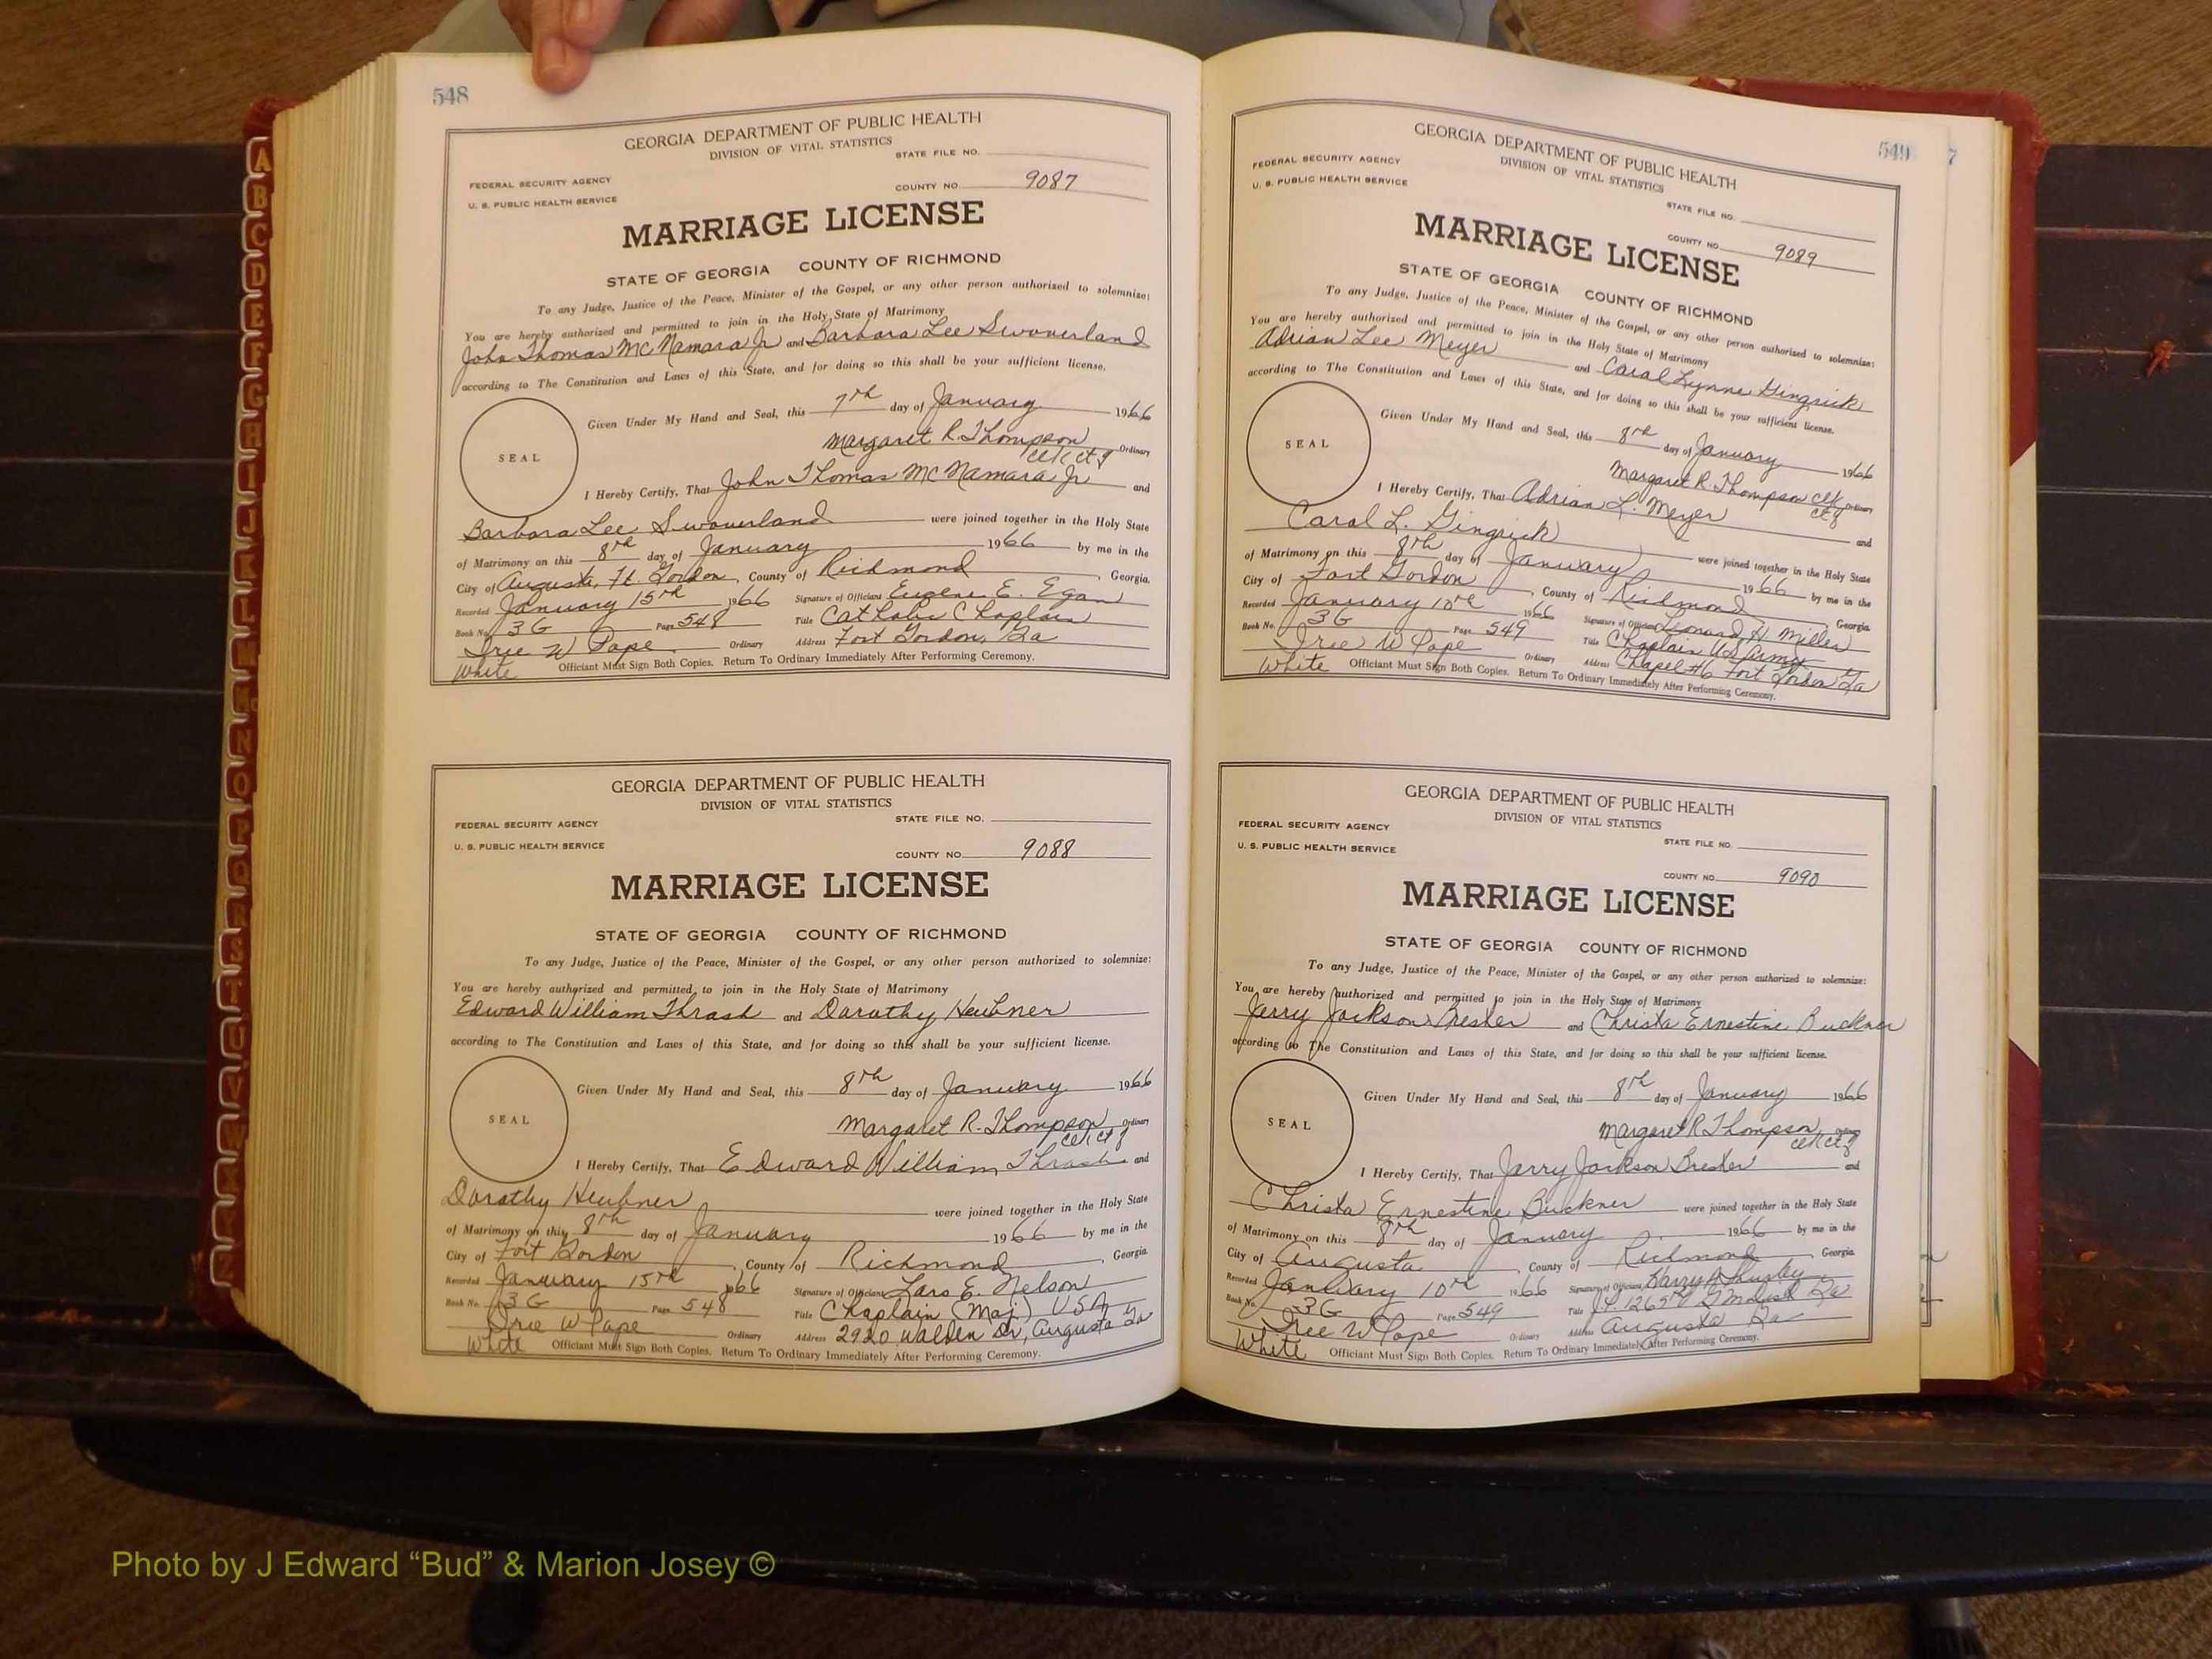 548
GEORGIA DEPARTMENT OF PUBLIC HEALTH
DIVISION OF VITAL STATISTICS
STATE FILE NO.
FEDERAL SECURITY AGENCY
U. S. PUBLIC HEALTH SERVICE
COUNTY NO. 9087
MARRIAGE LICENSE
STATE OF GEORGIA COUNTY OF RICHMOND
To any Judge, Justice of the Peace, Minister of the Gospel, or any other person authorized to solemnize:
You are hereby authorized and permitted to join in the Holy State of Matrimony
John Thomas McNamara Jr and Barbara Lee Swouerland
according to The Constitution and Laws of this State, and for doing so this shall be your sufficient license.
Given Under My Hand and Seal, this 7th day of January 1966
SEAL
Margaret R. Thompson Ordinary
I Hereby Certify, That John Thomas McNamara Jr and
Barbara Lee Swouerland were joined together in the Holy State
of Matrimony on this 8th day of January 1966 by me in the
City of Augusta, Ft. Gordon, County of Richmond, Georgia.
Recorded January 15th 1966 Signature of Officiant Eugene E. Egan
Book No. 3G Page 548 Title Catholic Chaplain
Dree W Pape Ordinary Address Fort Gordon, Ga
White Officiant Must Sign Both Copies. Return To Ordinary Immediately After Performing Ceremony.
GEORGIA DEPARTMENT OF PUBLIC HEALTH
DIVISION OF VITAL STATISTICS
STATE FILE NO.
FEDERAL SECURITY AGENCY
U. S. PUBLIC HEALTH SERVICE
COUNTY NO. 9088
MARRIAGE LICENSE
STATE OF GEORGIA COUNTY OF RICHMOND
To any Judge, Justice of the Peace, Minister of the Gospel, or any other person authorized to solemnize:
You are hereby authorized and permitted to join in the Holy State of Matrimony
Edward William Thrash and Dorothy Heubner
according to The Constitution and Laws of this State, and for doing so this shall be your sufficient license.
Given Under My Hand and Seal, this 8th day of January 1966
SEAL
Margaret R. Thompson Ordinary
I Hereby Certify, That Edward William Thrash and
Dorothy Heubner were joined together in the Holy State
of Matrimony on this 8th day of January 1966 by me in the
City of Fort Gordon, County of Richmond, Georgia
Recorded January 15th 1966 Signature of Officiant Lars E. Nelson
Book No. 3G Page 548 Title Chaplain (Maj) USA
Dree W Pape Ordinary Address 2920 Walden Dr, Augusta Ga
White Officiant Must Sign Both Copies. Return To Ordinary Immediately After Performing Ceremony.
549
GEORGIA DEPARTMENT OF PUBLIC HEALTH
DIVISION OF VITAL STATISTICS
FEDERAL SECURITY AGENCY
U. S. PUBLIC HEALTH SERVICE
STATE FILE NO.
COUNTY NO. 9089
MARRIAGE LICENSE
STATE OF GEORGIA COUNTY OF RICHMOND
To any Judge, Justice of the Peace, Minister of the Gospel, or any other person authorized to solemnize:
You are hereby authorized and permitted to join in the Holy State of Matrimony
Adrian Lee Meyer and Carol Lynne Gingrick
according to The Constitution and Laws of this State, and for doing so this shall be your sufficient license.
Given Under My Hand and Seal, this 8th day of January 1966
SEAL
Margaret R. Thompson Ordinary
I Hereby Certify, That Adrian L. Meyer and
Carol L. Gingrick were joined together in the Holy State
of Matrimony on this 8th day of January 1966 by me in the
City of Fort Gordon, County of Richmond, Georgia
Recorded January 10th 1966 Signature of Officiant Leonard H Miller
Book No. 3G Page 549 Title Chaplain US Army
Dree W Pape Ordinary Address Chapel #6 Fort Gordon Ga
White Officiant Must Sign Both Copies. Return To Ordinary Immediately After Performing Ceremony.
GEORGIA DEPARTMENT OF PUBLIC HEALTH
DIVISION OF VITAL STATISTICS
FEDERAL SECURITY AGENCY
U. S. PUBLIC HEALTH SERVICE
STATE FILE NO.
COUNTY NO. 9090
MARRIAGE LICENSE
STATE OF GEORGIA COUNTY OF RICHMOND
To any Judge, Justice of the Peace, Minister of the Gospel, or any other person authorized to solemnize:
You are hereby authorized and permitted to join in the Holy State of Matrimony
Jerry Jackson Brester and Christa Ernestine Buckner
according to The Constitution and Laws of this State, and for doing so this shall be your sufficient license.
Given Under My Hand and Seal, this 8th day of January 1966
SEAL
Margaret R Thompson Ordinary
I Hereby Certify, That Jerry Jackson Brester and
Christa Ernestine Buckner were joined together in the Holy State
of Matrimony on this 8th day of January 1966 by me in the
City of Augusta, County of Richmond, Georgia
Recorded January 10th 1966 Signature of Officiant Harry
Book No. 3G Page 549 Title J.P. 1265th
Dree W Pape Ordinary Address Augusta Ga
White Officiant Must Sign Both Copies. Return To Ordinary Immediately After Performing Ceremony.
A
B
C
D
E
F
G
H
I
J
K
L
M
Mc
N
O
P
Q
R
S
T
U
V
W
X
Y
Z
Photo by J Edward “Bud” & Marion Josey ©